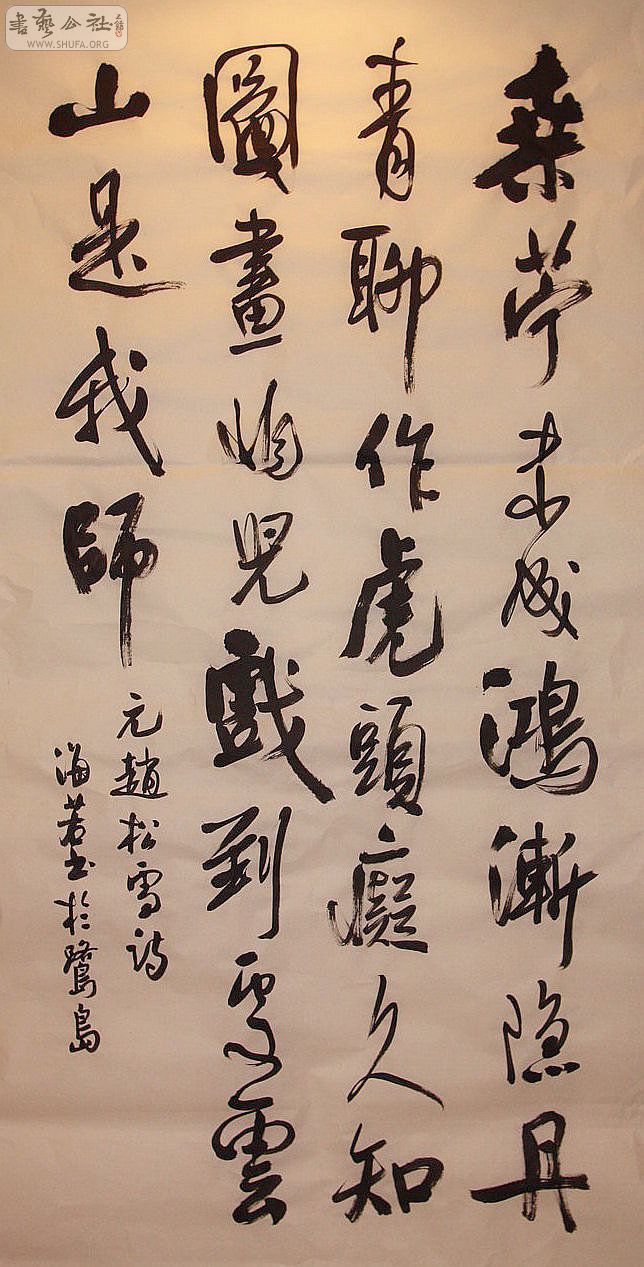 書藝公社
WWW.SHUFA.ORG
桑苧未成鴻漸隐丹
青聊作虎頭癡久知
圖畫非兒戲到處雲
山是我師
元趙松雪詩
海若书於鷺島